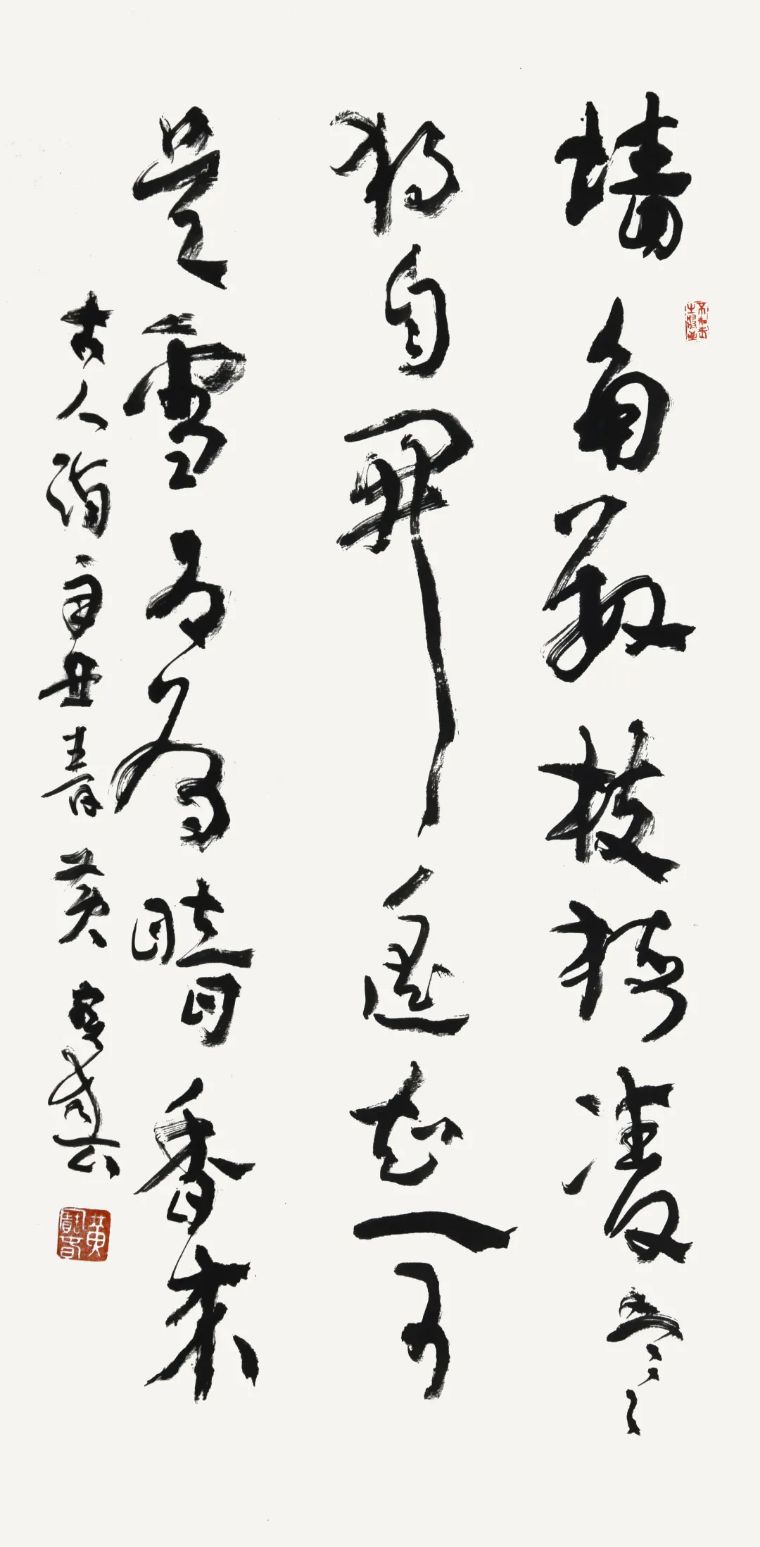 墙角数枝梅凌寒
独自開遥知不
是雪为有暗香来
古人詩辛丑 黄
黄